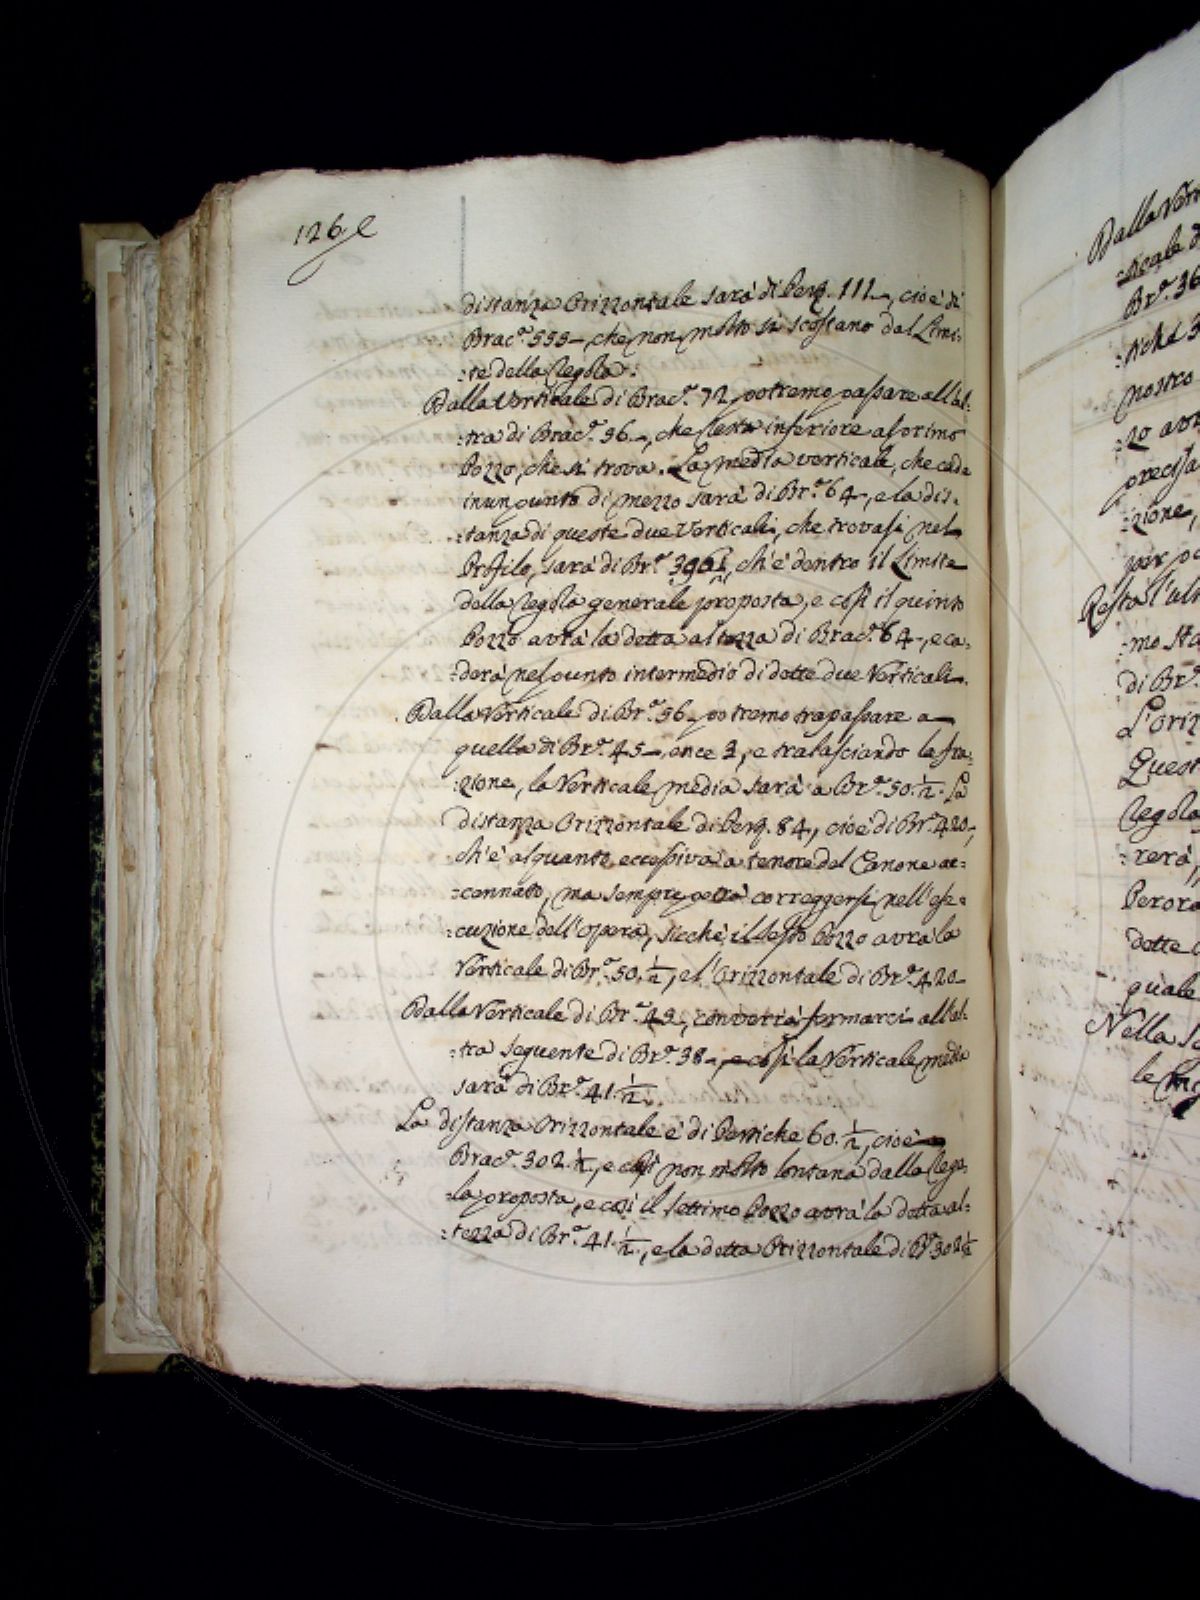 126
distanza Orizzontale sarà di Pert. 111, cioè di
Brac.ª 555, che non molto si scostano dal Limi-
:te della Regola:
Dalla Verticale di Brac.ª 72 potremo passare all'al-
:tra di Brac.ª 56, che resta inferiore al primo
Pozzo, che si trova. La media verticale, che cade
in un punto di mezzo sarà di Br.ª 64, e la dis-
:tanza di queste due Verticali, che trovasi nel
Profilo, sarà di Br.ª ch'è dentro il Limite
della Regola generale proposta, e così il quinto
Pozzo avrà la detta altezza di Brac.ª 64, e ca-
:derà nel punto intermedio di dette due Verticali.
Dalla Verticale di Br.ª 56 potremo trapassare a
quella di Br.ª 45 once 3, e tralasciando la fra-
:zione, la Verticale media sarà a Br.ª 50.½. La
distanza Orizzontale di Pert. 84, cioè di Br.ª 420,
ch'è alquanto eccessiva a tenore del Canone ac-
:cennato, ma sempre potrà correggersi nell'ese-
:cuzione dell'opera, sicchè il sesto Pozzo avrà la
Verticale di Br.ª 50.½, e l'Orizzontale di Br.ª 420
Dalla Verticale di Br.ª converrà fermarci all'al-
:tra seguente di Br.ª 38, e così la Verticale media
sarà di Br.ª 41.½.
La distanza Orizzontale è di Pertiche 60.½, cioè
Brac.ª 302.½, e così non molto lontana dalla Rego-
:la proposta, e così il settimo Pozzo avrà la detta al-
:tezza di Br.ª 41.½, e la detta Orizzontale di Br.ª 302½
Dalla
:ticale
Br.ª 36
:tiche
nostro
:zo
:zione,
per
Resta
:mo
di Br.ª
Regola
:rerà,
Perora
dette
quale
Nella